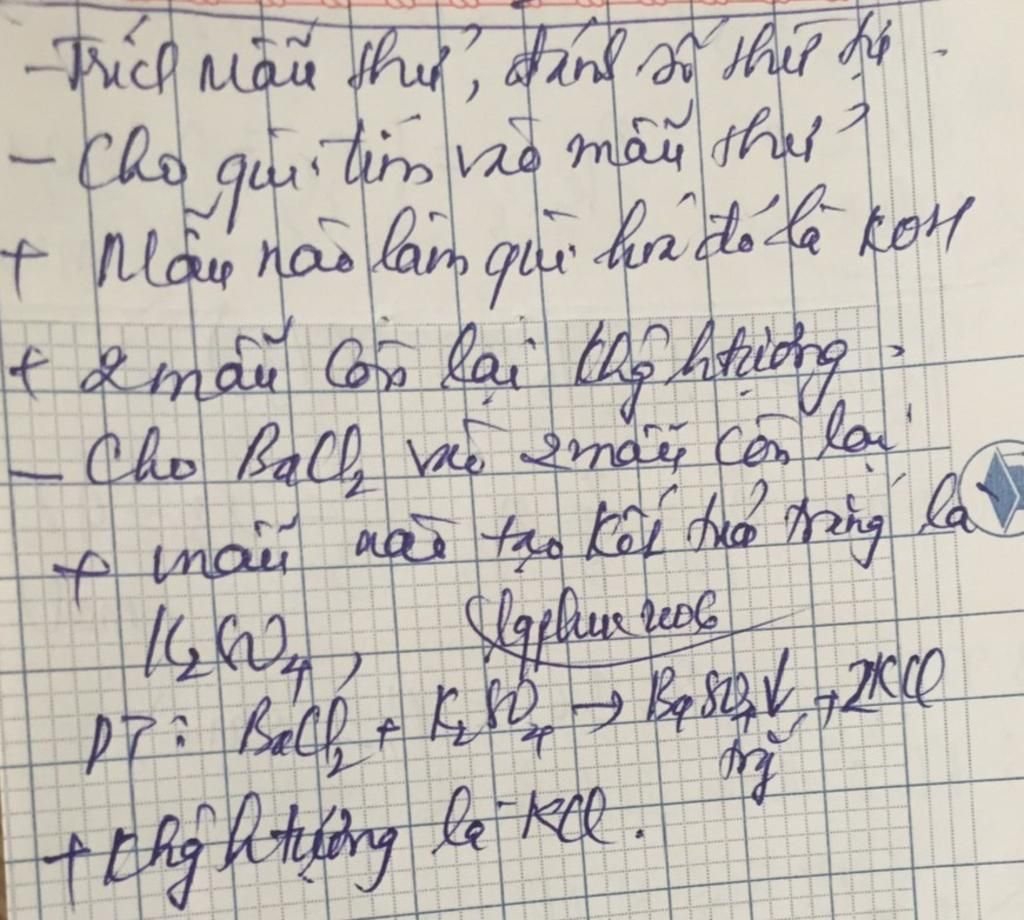 - Trích mẫu thử, đánh số thứ tự.
- Cho quì tím vào mẫu thử
+ Mẫu nào làm quì hoá đó là KOH
+ 2 mẫu còn lại khg htượng.
- Cho BaCl₂ vào 2 mẫu còn lại
+ mẫu nào tạo kết tủa trắng là
K₂SO₄,
PT: BaCl₂ + K₂SO₄ → BaSO₄↓ + 2KCl
trg
+ khg htượng là KCl.